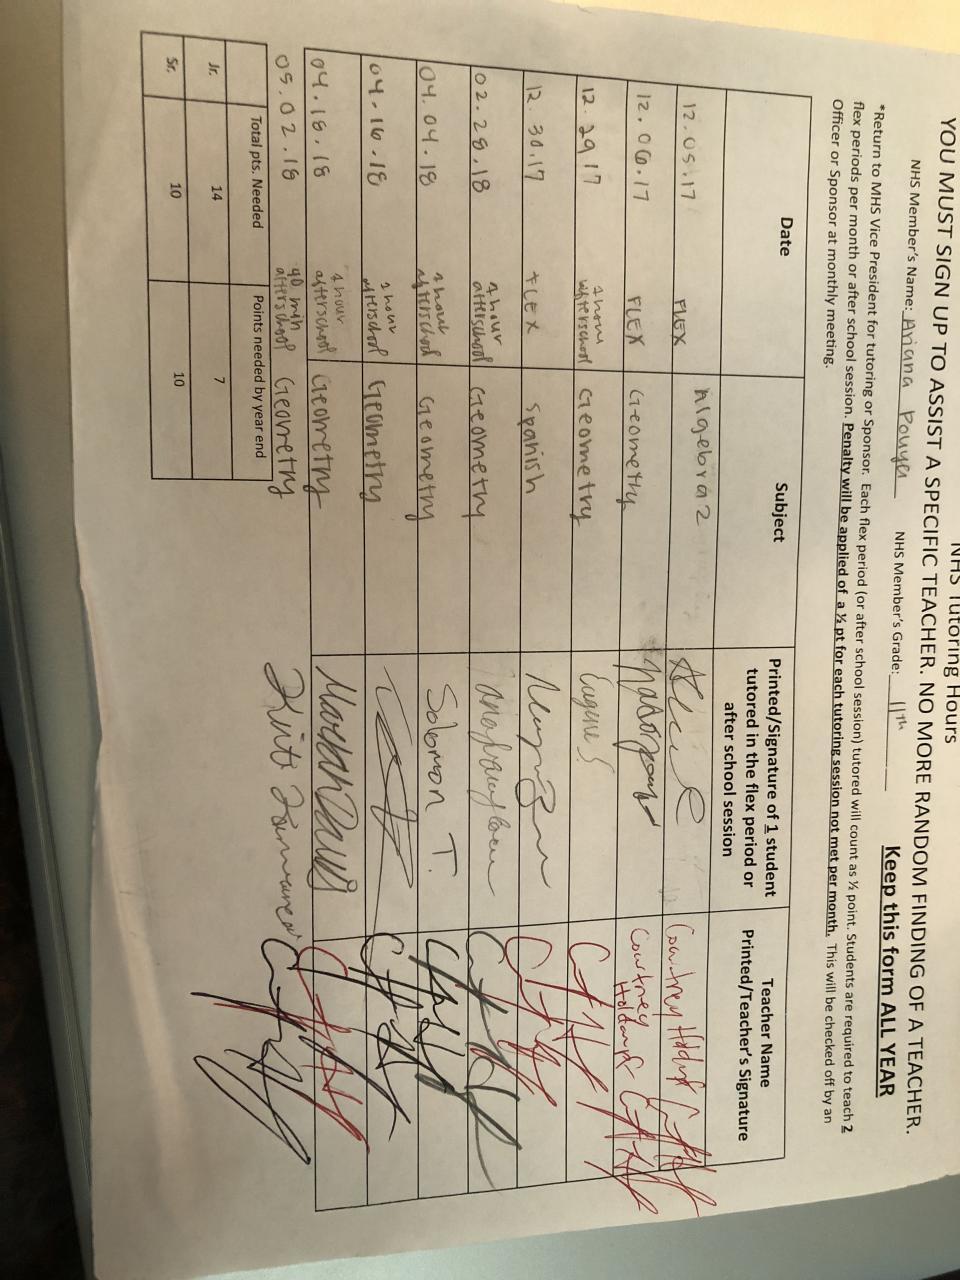 NHS Tutoring Hours
YOU MUST SIGN UP TO ASSIST A SPECIFIC TEACHER. NO MORE RANDOM FINDING OF A TEACHER.
NHS Member's Name: Ariana Pouya NHS Member's Grade: 11th Keep this form ALL YEAR
*Return to MHS Vice President for tutoring or Sponsor. Each flex period (or after school session) tutored will count as ½ point. Students are required to teach 2
flex periods per month or after school session. Penalty will be applied of a ½ pt for each tutoring session not met per month. This will be checked off by an
Officer or Sponsor at monthly meeting.
Date Subject Printed/Signature of 1 student tutored in the flex period or after school session Teacher Name Printed/Teacher's Signature
12.05.17 FLEX Algebra 2 Courtney
12.06.17 FLEX Geometry Courtney
12.29.17 1 hour afterschool Geometry Eugene S
12.30.17 FLEX Spanish
02.28.18 1 hour afterschool Geometry
04.04.18 1 hour afterschool Geometry Solomon T.
04.16.18 1 hour afterschool Geometry
04.18.18 1 hour afterschool Geometry
05.02.18 40 min afterschool Geometry
Total pts. Needed Points needed by year end
Jr. 14 7
Sr. 10 10